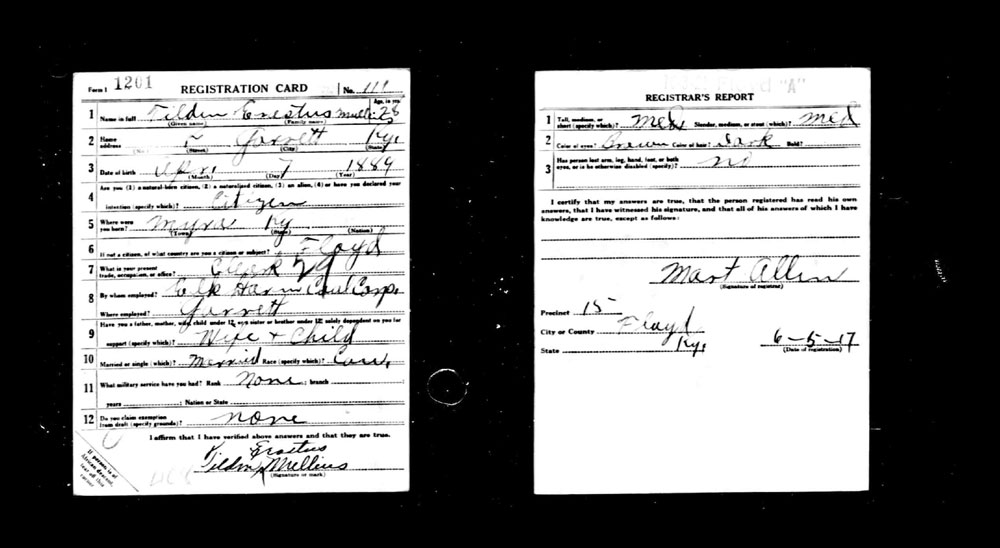 Form 1 1201 REGISTRATION CARD No. 111
1 Name in full Tilden Erestus Mullins Age, in yrs. 28
(Given name) (Family name)
2 Home address Garrett Ky.
(No.) (Street) (City) (State)
3 Date of birth 7 1889
(Month) (Day) (Year)
4 Are you (1) a natural-born citizen, (2) a naturalized citizen, (3) an alien, (4) or have you declared your
intention (specify which)? Citizen
5 Where were you born? Ky
(Town) (State) (Nation)
6 If not a citizen, of what country are you a citizen or subject? Floyd
7 What is your present trade, occupation, or office? Clerk
8 By whom employed? Elk Horn Coal Corp.
Where employed? Garrett
9 Have you a father, mother, wife, child under 12, or a sister or brother under 12, solely dependent on you for
support (specify which)? Wife + Child
10 Married or single (which)? Married Race (specify which)?
11 What military service have you had? Rank None ; branch
years ; Nation or State
12 Do you claim exemption from draft (specify grounds)? none
I affirm that I have verified above answers and that they are true.
Erastus
Tilden Mullins
(Signature or mark)
If person is of African descent, tear off this corner
REGISTRAR'S REPORT "A"
1 Tall, medium, or short (specify which)? Med Slender, medium, or stout (which)? med
2 Color of eyes? Brown Color of hair? Dark Bald?
3 Has person lost arm, leg, hand, foot, or both eyes, or is he otherwise disabled (specify)? no
I certify that my answers are true, that the person registered has read his own
answers, that I have witnessed his signature, and that all of his answers of which I have
knowledge are true, except as follows:
Mart Allen
(Signature of registrar)
Precinct 15
City or County Floyd
State Ky. 6-5-17
(Date of registration)